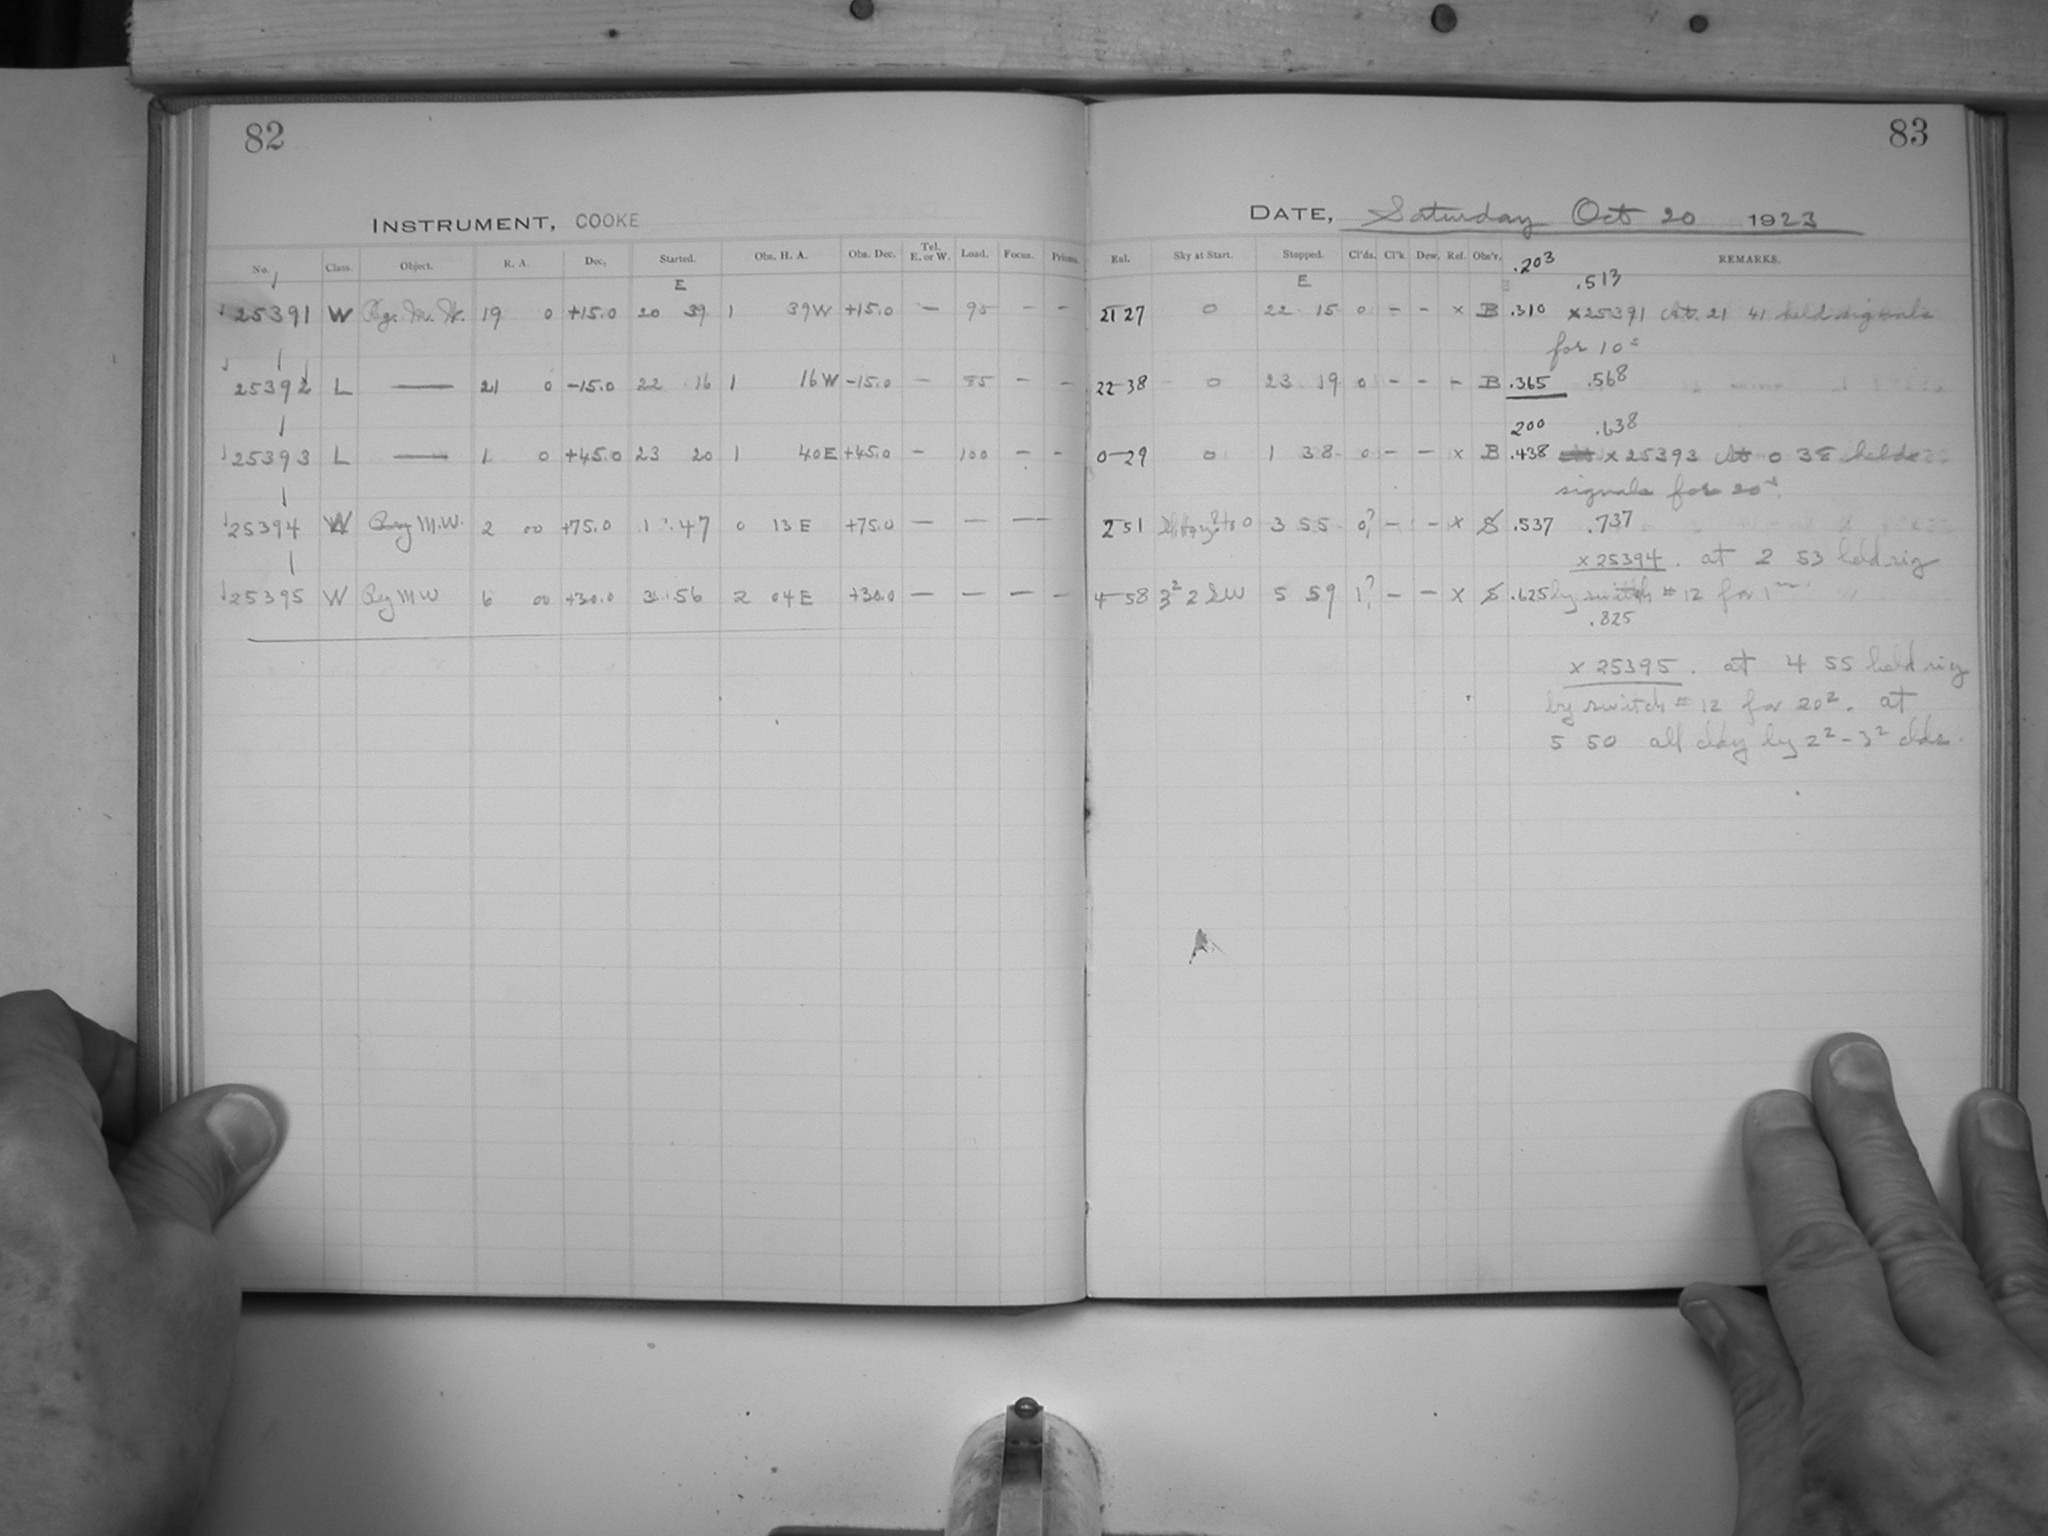 82
INSTRUMENT, COOKE
No. Class. Object. R. A. Dec. Started. Obs. H. A. Obs. Dec. Tel. E. or W. Load. Focus. Prisms.
E
25391 W Reg. M. W. 19 0 +15.0 20 39 1 39W +15.0 — 95 - -
25392 L —— 21 0 -15.0 22 16 1 16W -15.0 — 85 - -
25393 L —— 1 0 +45.0 23 20 1 40E +45.0 - 100 - -
25394 W Reg M.W. 2 00 +75.0 1 47 0 13E +75.0 — — —
25395 W Reg MW 6 00 +30.0 3 56 2 04E +30.0 — — — -
83
DATE, Saturday Oct 20 1923
Eal. Sky at Start. Stopped. Cl'ds. Cl'k Dew. Ref. Obs'r. REMARKS.
.203
E .513
21 27 0 22 15 0 - - x B .310 x25391 At 21 41 held signals
for 10s
22-38 0 23 19 0 - - - B .365 .568
200 .638
0-29 0 1 38 0 - - x B .438 x 25393 At 0 38 held
signals for 20s.
2 51 3 55 0? - - x S .537 .737
x 25394. at 2 53 held sig
4 58 3² 2 SW 5 59 1? - - x S .625 by switch #12 for 1m
.825
x 25395. at 4 55 held sig
by switch #12 for 20². at
5 50 all cldy by 2²-3² clds.